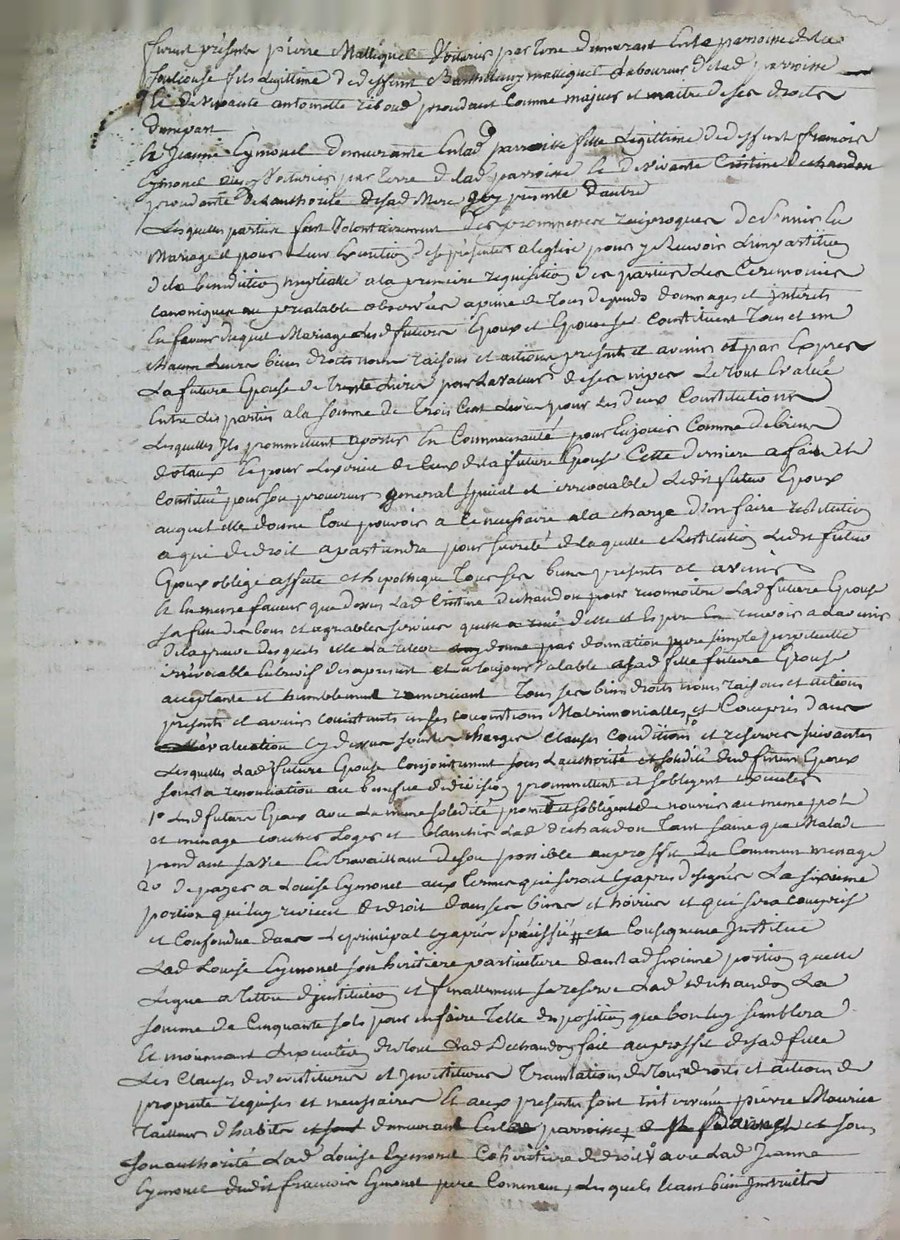 furent présents pierre Matteguet Voiturier par Terre demeurant En la parroisse de la
fouliouse fils Legittime de deffunt Barthelemy matteguet Laboureur de lad parroisse
Et de vivante antoinette procedant Comme majeur et maitre de ses droits
dunepart
Et Jeanne Eymonet demeurante En lad parroisse fille Legittime de deffunt francois
Eymonet Voiturier par terre de lad parroisse Et de Vivante Cristine dechandon
procedante de Lauthorité de sad Mere icy presente dautre
Lesquelles parties font Volontairement des promesses reciproques de sunir En
Mariage et pour Leur Execution de se présenter a leglise pour y Recevoir Limpartition
de la benediction nuptialle a la premiere requisition des parties Les Ceremonies
canoniques au prealable observées a peine de Tous depends dommages et interets
En faveur duquel Mariage Lesd futurs Epoux et Epouse se Constituent Tous et un
Chacun Leurs biens droits noms raisons et actions presents et avenir et par Exprès
La future Epouse de Trente Livres pour La valeur de ses nipes Le tout Evalué
Entre Les parties a la somme de Trois Cent Livres pour Les deux Constitutions
Lesquelles Ils promettent aporter En Communauté pour En jouir Comme de biens
dotaux Et pour Lexercice de Ceux de la future Epouse Cette derniere a fait Et
Constitué pour son procureur general special et irrevocable Ledit futur Epoux
auquel elle donne Tout pouvoir a Ce necessaire a la charge den faire restitution
a qui de droit apartiendra pour sureté de laquelle Restitution Ledit futur
Epoux oblige affecte et hipotheque Tous ses biens presents et avenir
Et En meme faveur que dessus Lad Cristine dechandon pour reconnoitre Lad future Epouse
sa fille des bons et agreables services quelle a delle et Espere En recevoir a Lavenir
de la preuve desquels elle La releve donne par donation pure simple perpetuelle
irrevocable des apresent et a toujours Valable a sad fille future Epouse
acceptante et humblement remerciant Tous ses biens droits noms raisons et actions
presents et avenir consistants en ses Matrimonialles et Compris dans
Levaluation cy dessus sous Les charges Clauses Conditions et reserves suivantes
Lesquelles Lad future Epouse Conjointement sous Lauthorité et solidité dud futur Epoux
sous La renonciation au benefice de division promettent et sobligent executer
1° Lesd futurs Epoux avec La meme solidité promettent et sobligent de nourrir au meme pot
et menage coucher Loger et blanchir Lad dechandon Tant saine que Malade
pendant sa vie En travaillant de son possible au proffit du Commun menage
2° de payer a Louise Eymonet aux Termes qui seront cy apres designés La sixieme
portion qui luy revient de droit dans ses biens et hoiries et qui sera compris
et Confondue dans Le principal cy après specifié et En Consequence Institue
Lad Louise Eymonet son heritiere particuliere dans lad sixieme portion quelle
Legue a tittre dinstitution et finallement se reserve Lad dechandon La
somme de Cinquante sols pour en faire Telle disposition que bon luy semblera
Et moyennant Lexecution du tout Lad Dechandon fait au proffit de sad fille
Les Clauses devestitures et Investitures Translations de tous droits et actions de
proprieté requises et necessaires Et aux presentes sont intervenus pierre Maurice
Tailleur dhabits demeurant En lad parroisse et sous
son authorité Lad Louise Eymonet Coheritiere de droit avec Lad Jeanne
Eymonet dudit francois Eymonet pere Commun, Lesquels Etant bien Instruits